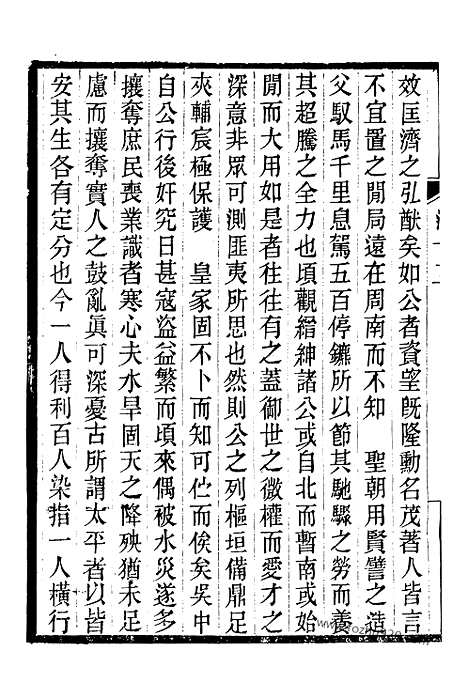 效匡濟之弘猷矣如公者資望旣隆勳名茂著人皆言
不宜置之閒局遠在周南而不知　聖朝用賢譬之造
父馭馬千里息駕五百停鑣所以節其馳驟之勞而養
其超騰之全力也頃觀縉紳諸公或自北而暫南或始
閒而大用如是者往往有之蓋御世之微權而愛才之
深意非眾可測匪夷所思也然則公之列樞垣備鼎足
夾輔宸極保護　皇家固不卜而知可伫而俟矣吳中
自公行後奸宄日甚寇盜益繁而頃來偶被水災遂多
攘奪庶民喪業識者寒心夫水旱固天之降殃猶未足
慮而攘奪實人之鼓亂眞可深憂古所謂太平者以皆
安其生各有定分也今一人得利百人染指一人橫行